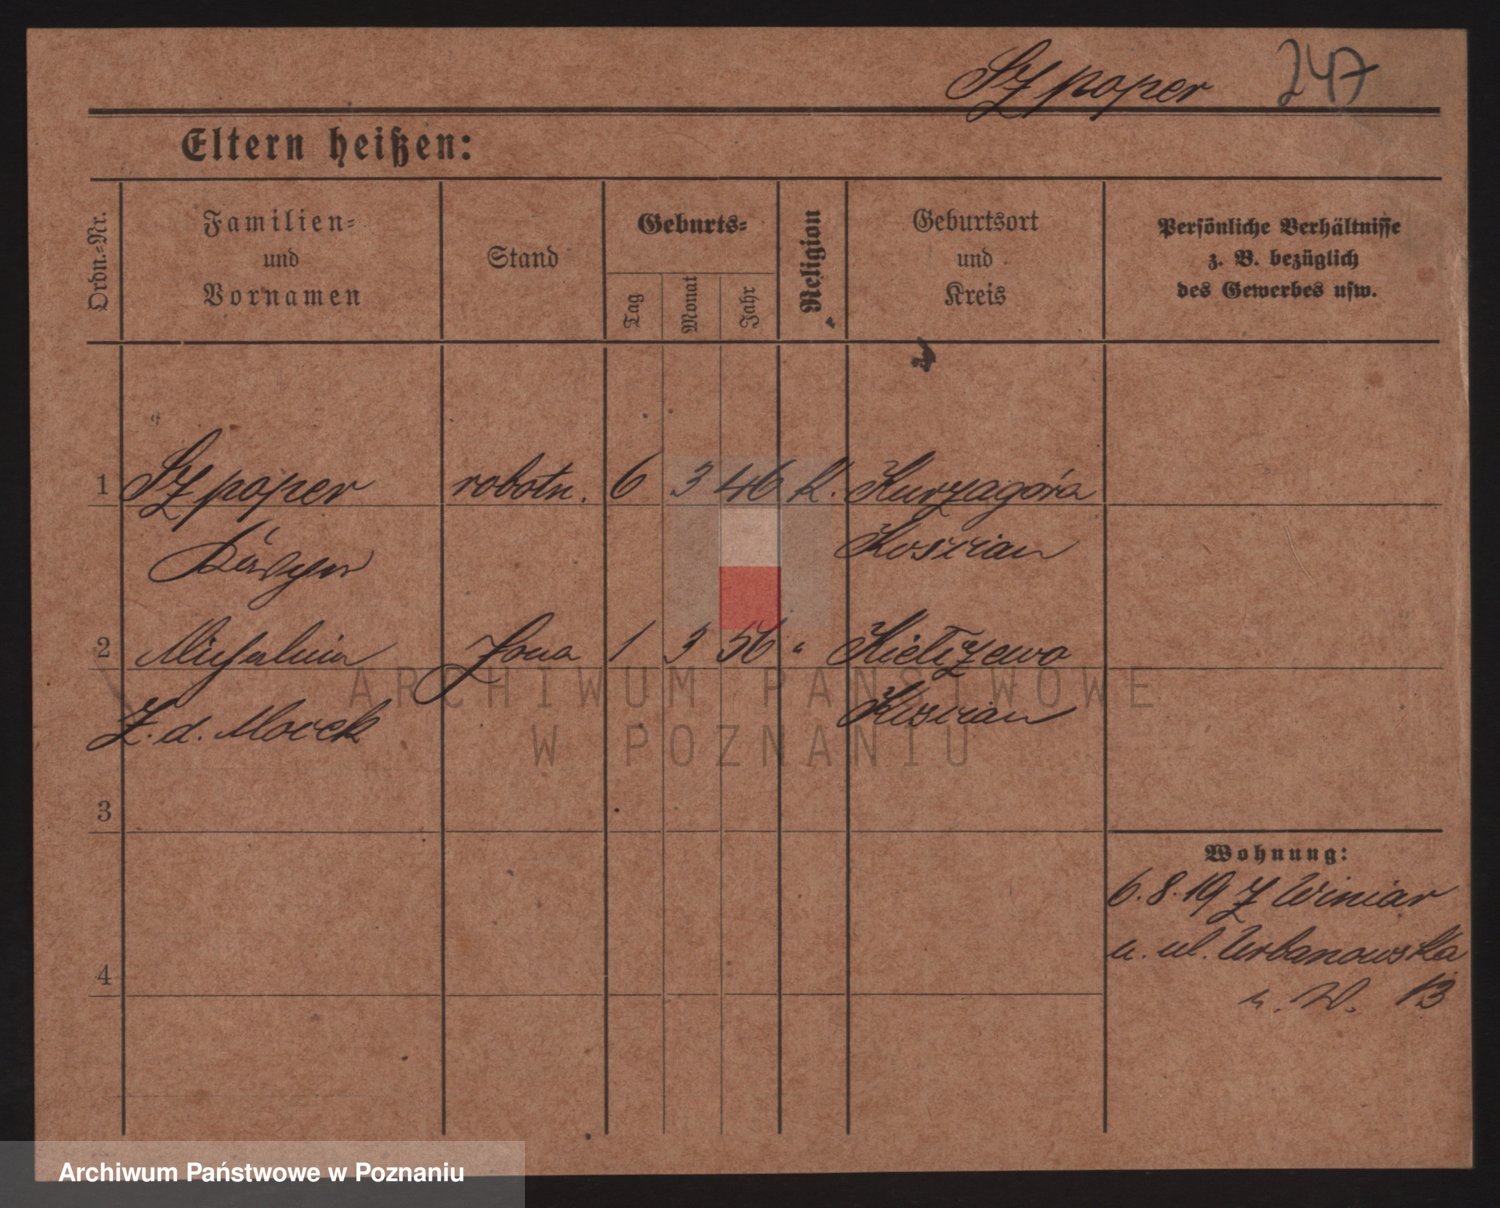 Szpoper 247
Eltern heißen:
Ordn.-Nr.
Familien-
und
Vornamen
Stand
Geburts-
Tag
Monat
Jahr
Religion
Geburtsort
und
Kreis
Persönliche Verhältnisse
z. B. bezüglich
des Gewerbes usw.
1 Szpoper robotn. 6 3 46 k. Kurzagóra
Koscian
2 Michalina żona 1 3 56 " Kiełczewo
Koscian
z. d. Mocek
3
4
Wohnung:
6.8.19 z Winiar
n. ul. Urbanowska
13
ARCHIWUM PAŃSTWOWE
W POZNANIU
Archiwum Państwowe w Poznaniu